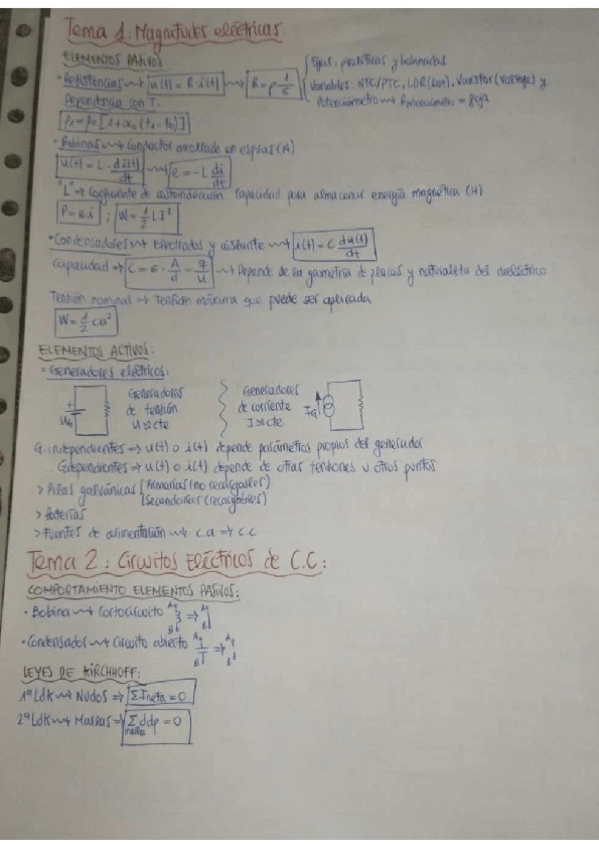 Tema 1: Magnitudes eléctricas.
ELEMENTOS PASIVOS:
• Resistencias → u(t) = R · i(t) → R = ρ l/s { Fijas: prolíficas y bobinadas
Variables: NTC/PTC, LDR (luz), Varistor (voltaje) y
Potenciómetro →
Dependencia con T.
ρ₁ = ρ₀[1 + α₀(t₁ - t₀)]
• Bobinas → Conductor arrollado en espiras (A)
u(t) = L · di(t)/dt → e = -L di/dt
"L" → Coeficiente de autoinducción. Capacidad para almacenar energía magnética (H)
P = e·i ; W = 1/2 L I²
• Condensadores → Electrodos y aislante → i(t) = C du(t)/dt
Capacidad → C = ε · A/d = q/u → Depende de la geometría de placas y naturaleza del dieléctrico
Tensión nominal → Tensión máxima que puede ser aplicada
W = 1/2 cu²
ELEMENTOS ACTIVOS:
• Generadores eléctricos:
UG Generadores de tensión U = cte
Generadores de corriente I = cte IG
G. independientes → u(t) o i(t) depende parámetros propios del generador
G dependientes → u(t) o i(t) depende de otras tensiones u otros puntos
> Pilas galvánicas { Primarias (no recargables)
Secundarias (recargables)
> Baterías
> Fuentes de alimentación → c.a ⇒ c.c
Tema 2: Circuitos Eléctricos de C.C:
COMPORTAMIENTO ELEMENTOS PASIVOS:
• Bobina → Cortocircuito A B ⇒ A B
• Condensador → Circuito abierto A B ⇒ A B
LEYES DE KIRCHHOFF:
1ª LdK → Nudos ⇒ Σ Ineta = 0
2ª LdK → Mallas ⇒ Σ ddp = 0
malla